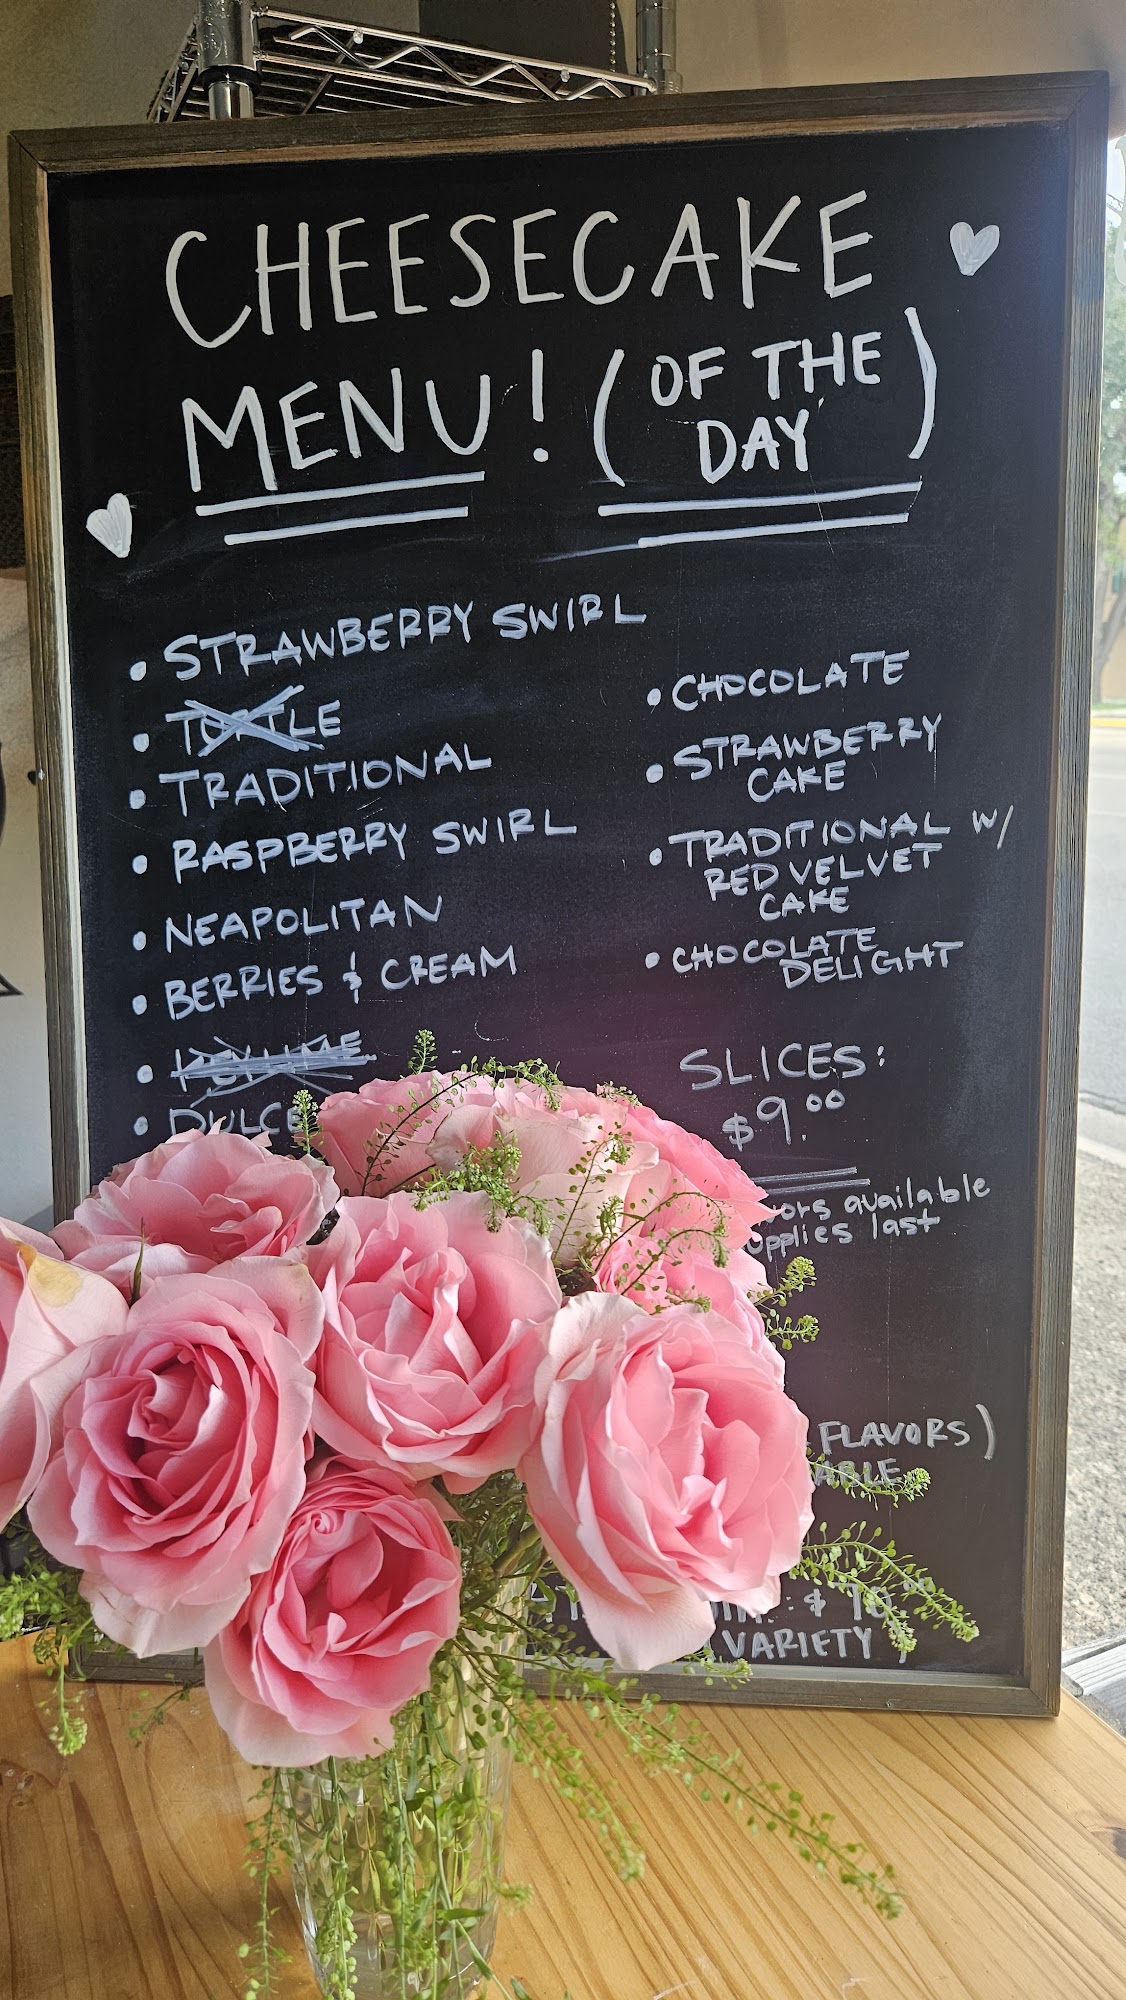 CHEESECAKE
MENU! (OF THE
DAY)
• STRAWBERRY SWIRL
• TURTLE
• TRADITIONAL
• RASPBERRY SWIRL
• NEAPOLITAN
• BERRIES & CREAM
• KEY LIME
• DULCE
• CHOCOLATE
• STRAWBERRY
CAKE
• TRADITIONAL W/
RED VELVET
CAKE
• CHOCOLATE
DELIGHT
SLICES:
$9.00
available
last
FLAVORS)
VARIETY